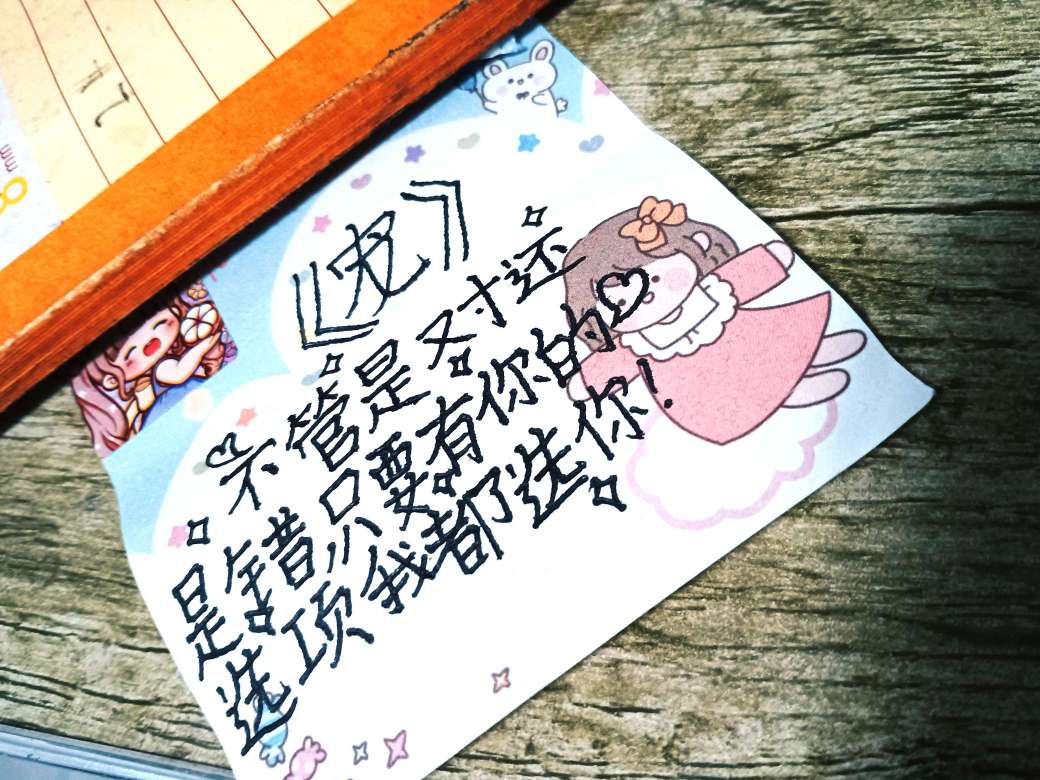 不管是对还
是错只要有你的
选项我都选你！